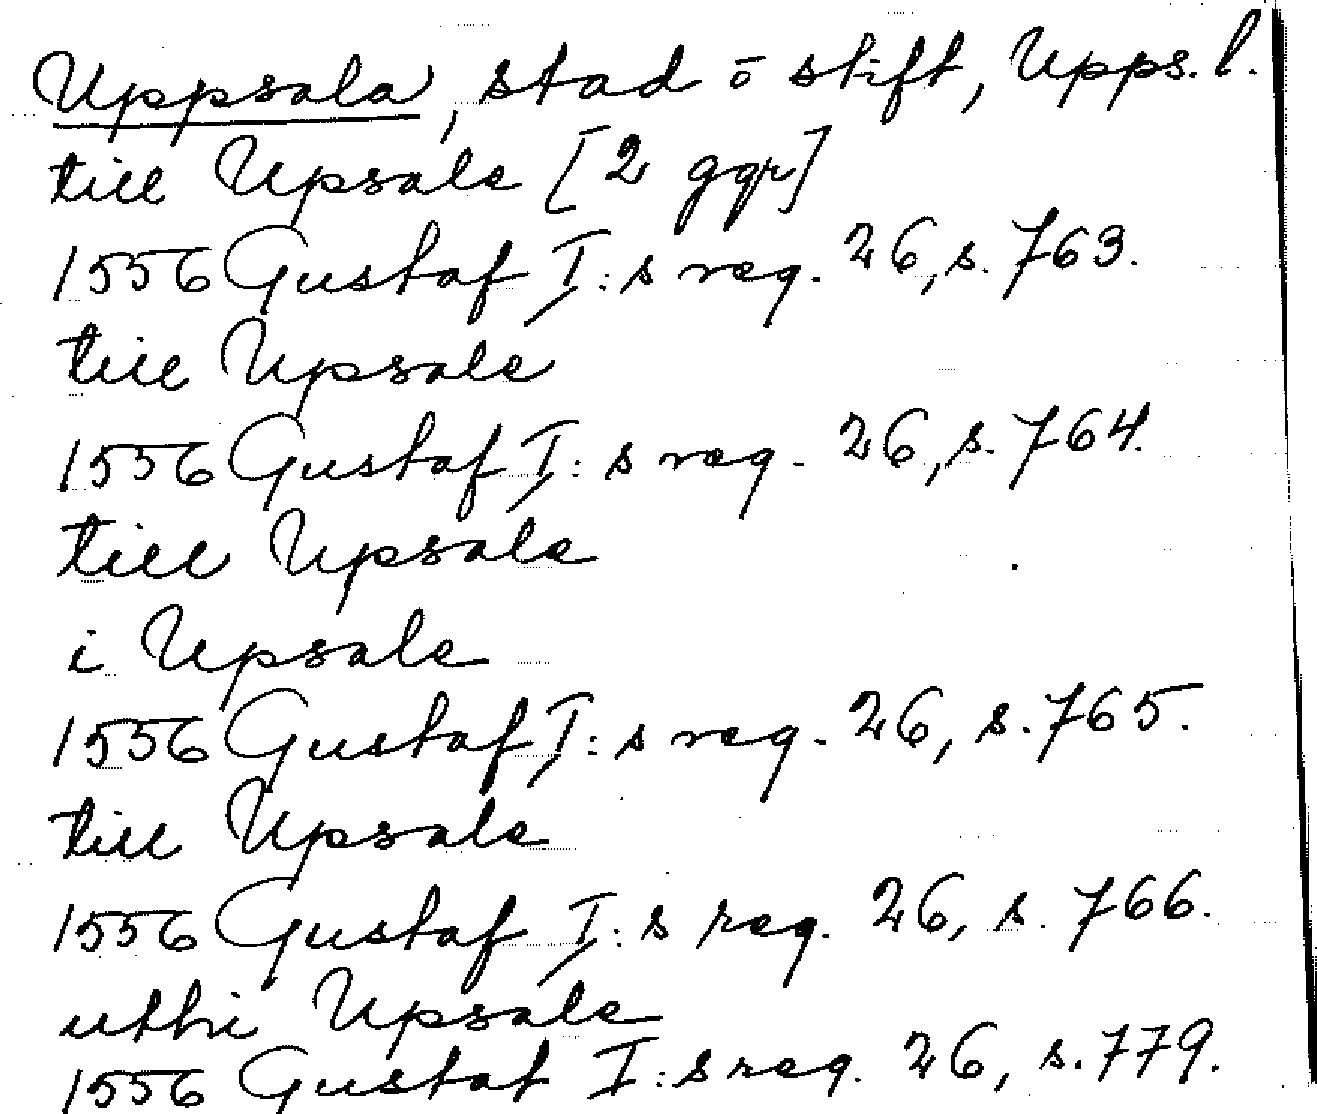 Uppsala, stad o stift, Upps. l.
till Upsale [2 ggr]
1556 Gustaf I:s reg. 26, s. 763.
till Upsale
1556 Gustaf I:s reg. 26, s. 764.
till Upsale
i Upsale
1556 Gustaf I:s reg. 26, s. 765.
till Upsale
1556 Gustaf I:s reg. 26, s. 766.
uthi Upsale
1556 Gustaf I:s reg. 26, s. 779.